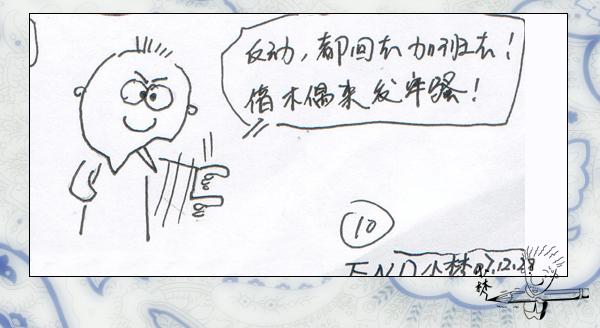 反动，都回去加班去！
借木偶来发牢骚！
10
END 小林 07.12.28
林